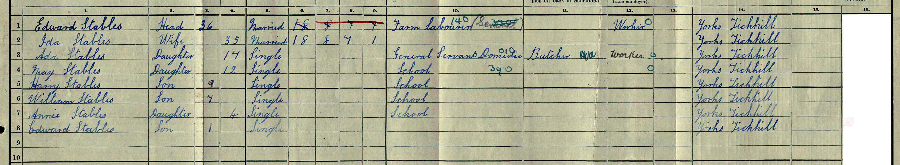 1 Edward Stables Head 36 Married Farm Labourer 140 Worker 0 Yorks Tickhill
2 Ida Stables Wife 35 Married 18 8 7 1 Yorks Tickhill
3 Ada Stables Daughter 17 Single General Servant Domestic Butcher Worker 0 Yorks Tickhill
4 May Stables Daughter 12 Single School 390 0 Yorks Tickhill
5 Harry Stables Son 9 Single School Yorks Tickhill
6 William Stables Son 7 Single School Yorks Tickhill
7 Annie Stables Daughter 4 Single School Yorks Tickhill
8 Edward Stables Son 1 Single Yorks Tickhill
9
10